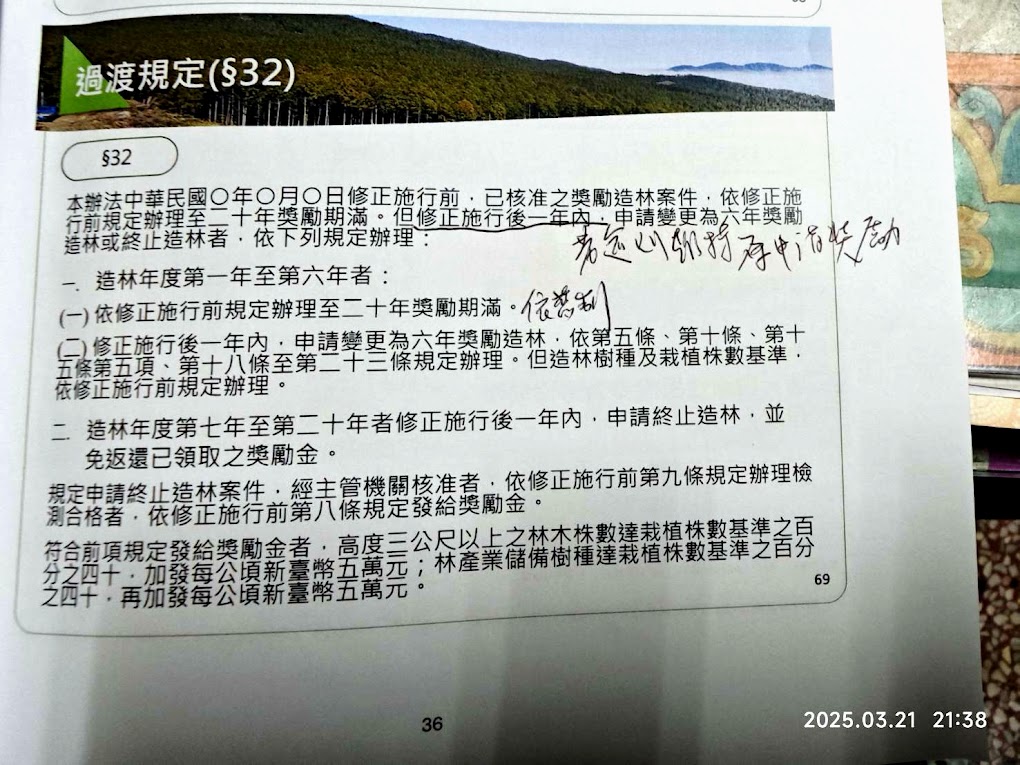 過渡規定(§32)
§32
本辦法中華民國〇年〇月〇日修正施行前，已核准之獎勵造林案件，依修正施
行前規定辦理至二十年獎勵期滿。但修正施行後一年內，申請變更為六年獎勵
造林或終止造林者，依下列規定辦理：
一. 造林年度第一年至第六年者：
(一)依修正施行前規定辦理至二十年獎勵期滿。
(二)修正施行後一年內，申請變更為六年獎勵造林，依第五條、第十條、第十
五條第五項、第十八條至第二十三條規定辦理。但造林樹種及栽植株數基準，
依修正施行前規定辦理。
二. 造林年度第七年至第二十年者修正施行後一年內，申請終止造林，並
免返還已領取之獎勵金。
規定申請終止造林案件，經主管機關核准者，依修正施行前第九條規定辦理檢
測合格者，依修正施行前第八條規定發給獎勵金。
符合前項規定發給獎勵金者，高度三公尺以上之林木株數達栽植株數基準之百
分之四十，加發每公頃新臺幣五萬元；林產業儲備樹種達栽植株數基準之百分
之四十，再加發每公頃新臺幣五萬元。
69
36
2025.03.21 21:38